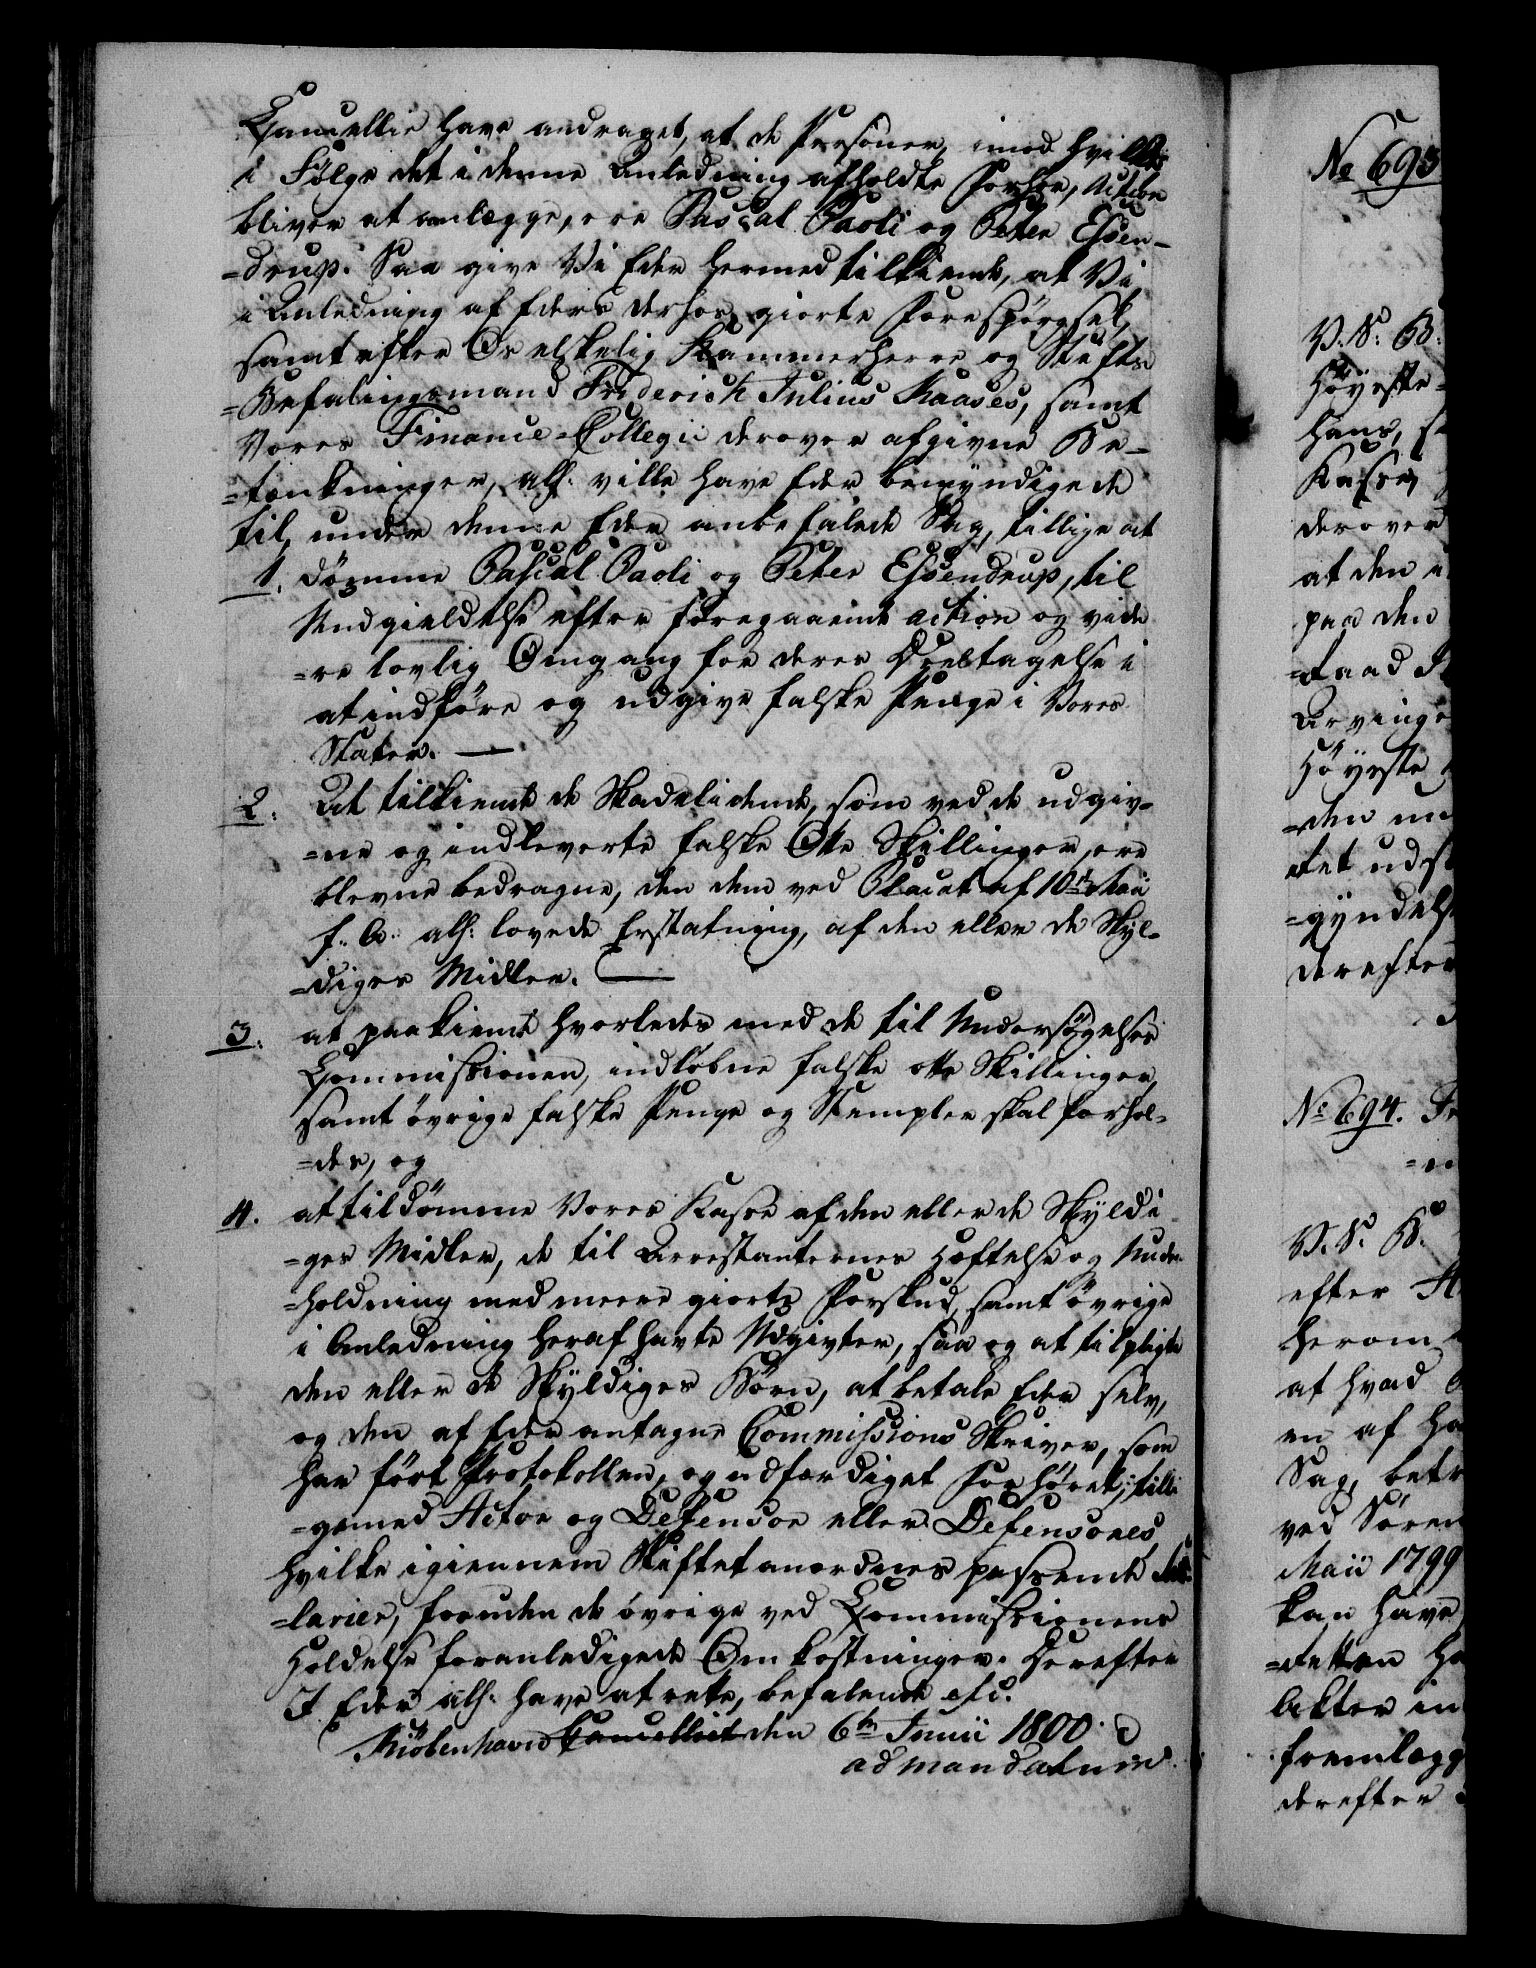 Cancellie have andraget, at de Personer, imod hvilke
i Følge det i denne Anledning afholdte Forhør, Action
bliver at anlægge, ere Pascal Paoli og Peter Essen-
=drup. Saa give Vi Eder hermed tilkiende, at Vi
i Anledning af Eders derhos giorte Forespørgsel,
samt efter Os elskelig Kammerherre og Stifts-
=Befalingsmand Friderich Julius Kaases, samt
Vores Finance-Collegii derover afgivne Be-
=tænkninger, allf: ville have Eder bemyndigede
til, under denne Eder anbefalede Sag, tillige at
1. dømme Pascal Paoli og Peter Essendrup, til
Undgieldelse efter foregaaende action og vide
=re lovlig Omgang for deres Deeltagelse i
at indføre og udgive falske Penge i Vores
Stater. —
2. At tilkiende de Skadelidende, som ved de udgiv=
=ne og indleverte falske Otte Skillinger, ere
blevne bedragne, den dem ved Placat af 10de Maii
f. A. allf: lovede Erstatning, af den eller de Skyl=
=diges Midler. —
3. at paakiende hvorledes med de til Undersøgelses
Commissionen, indløbne falske otte Skillinger,
samt øvrige falske Penge og Stempler skal forhol=
=des, og
4. at tildømme Vores Kasse af den eller de Skyldi
=ges Midler, de til Arrestanternes Hæftelse og Under
=holdning med meere giorte Forskud, samt øvrige
i Anledning heraf havte Udgivter, saa og at tilpligte
den eller de Skyldiges Börn, at betale Eder selv,
og den af Eder antagne Commissions Skriver, som
har ført Protokollen, og udfærdiget Forhøret, tilli
=gemed Actor og Defensor eller Defensores,
hvilke igiennem Stiftet anordnes passende Sal
=larier, foruden de øvrige ved Commissionens
Holdelse foranledigede Omkostninger. Herefter
I Eder allf: have at rette, befalende etc.
Kiöbenhavn Cancelliet den 6te Junii 1800.
ad mandatum.
No 693
V. S. B:
Høyeste=
hans, s
Kasse,
derover
at den i
paa den
=taad
Arvinge
Høyeste
=den
=tet udst
=gyndels
derefter
No 694. Fr
V. S. B.
efter
herom
at hvad
en af ha
Sag, betr
ved Søren
Maii 1799
kan have
=tetten ha
Akter in
fremlægg
derefter